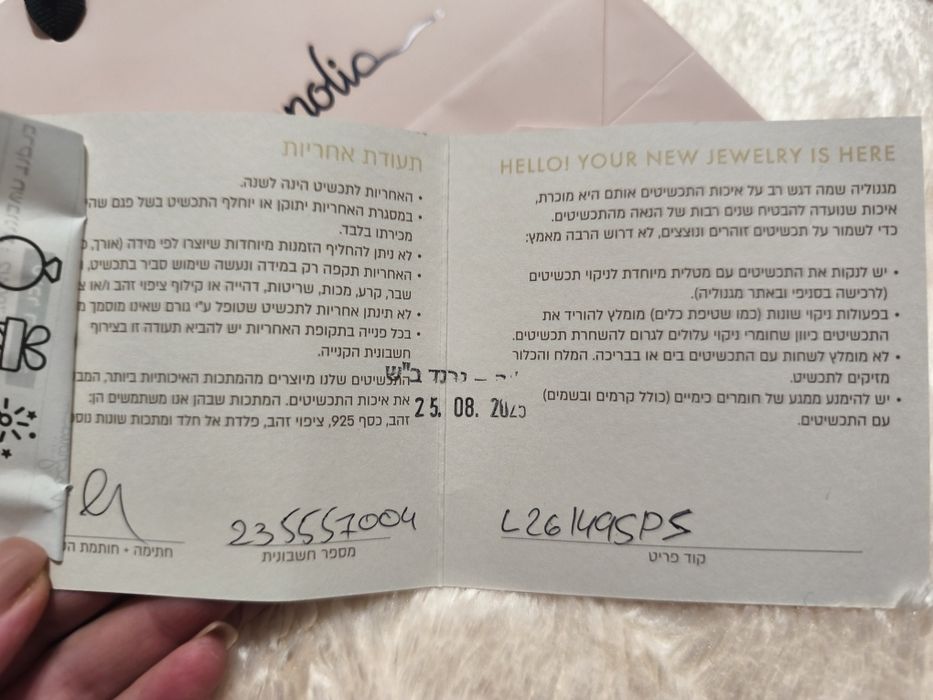 nolia
HELLO! YOUR NEW JEWELRY IS HERE
מגנוליה שמה דגש רב על איכות התכשיטים אותם היא מוכרת,
איכות שנועדה להבטיח שנים רבות של הנאה מהתכשיטים.
כדי לשמור על תכשיטים זוהרים ונוצצים, לא דרוש הרבה מאמץ:
• יש לנקות את התכשיטים עם מטלית מיוחדת לניקוי תכשיטים
(לרכישה בסניפי ובאתר מגנוליה).
• בפעולות ניקוי שונות (כמו שטיפת כלים) מומלץ להוריד את
התכשיטים כיוון שחומרי ניקוי עלולים לגרום להשחרת תכשיטים.
• לא מומלץ לשחות עם התכשיטים בים או בבריכה. המלח והכלור
מזיקים לתכשיט.
• יש להימנע ממגע של חומרים כימיים (כולל קרמים ובשמים)
עם התכשיטים.
L261495PS
קוד פריט
תעודת אחריות
• האחריות לתכשיט הינה לשנה.
• במסגרת האחריות יתוקן או יוחלף התכשיט בשל פגם שהי
מכירתו בלבד.
• לא ניתן להחליף הזמנות מיוחדות שיוצרו לפי מידה (אורך,
• האחריות תקפה רק במידה ונעשה שימוש סביר בתכשיט,
שבר, קרע, מכות, שריטות, דהייה או קילוף ציפוי זהב ו/או
• לא תינתן אחריות לתכשיט שטופל ע"י גורם שאינו מוסמך
• בכל פנייה בתקופת האחריות יש להביא תעודה זו בצירוף
חשבונית הקנייה.
התכשיטים שלנו מיוצרים מהמתכות האיכותיות ביותר,
את איכות התכשיטים. המתכות שבהן אנו משתמשים הן:
זהב, כסף 925, ציפוי זהב, פלדת אל חלד ומתכות שונות
גרנד ב"ש
25. 08. 2025
235557004
מספר חשבונית
חתימה + חותמת